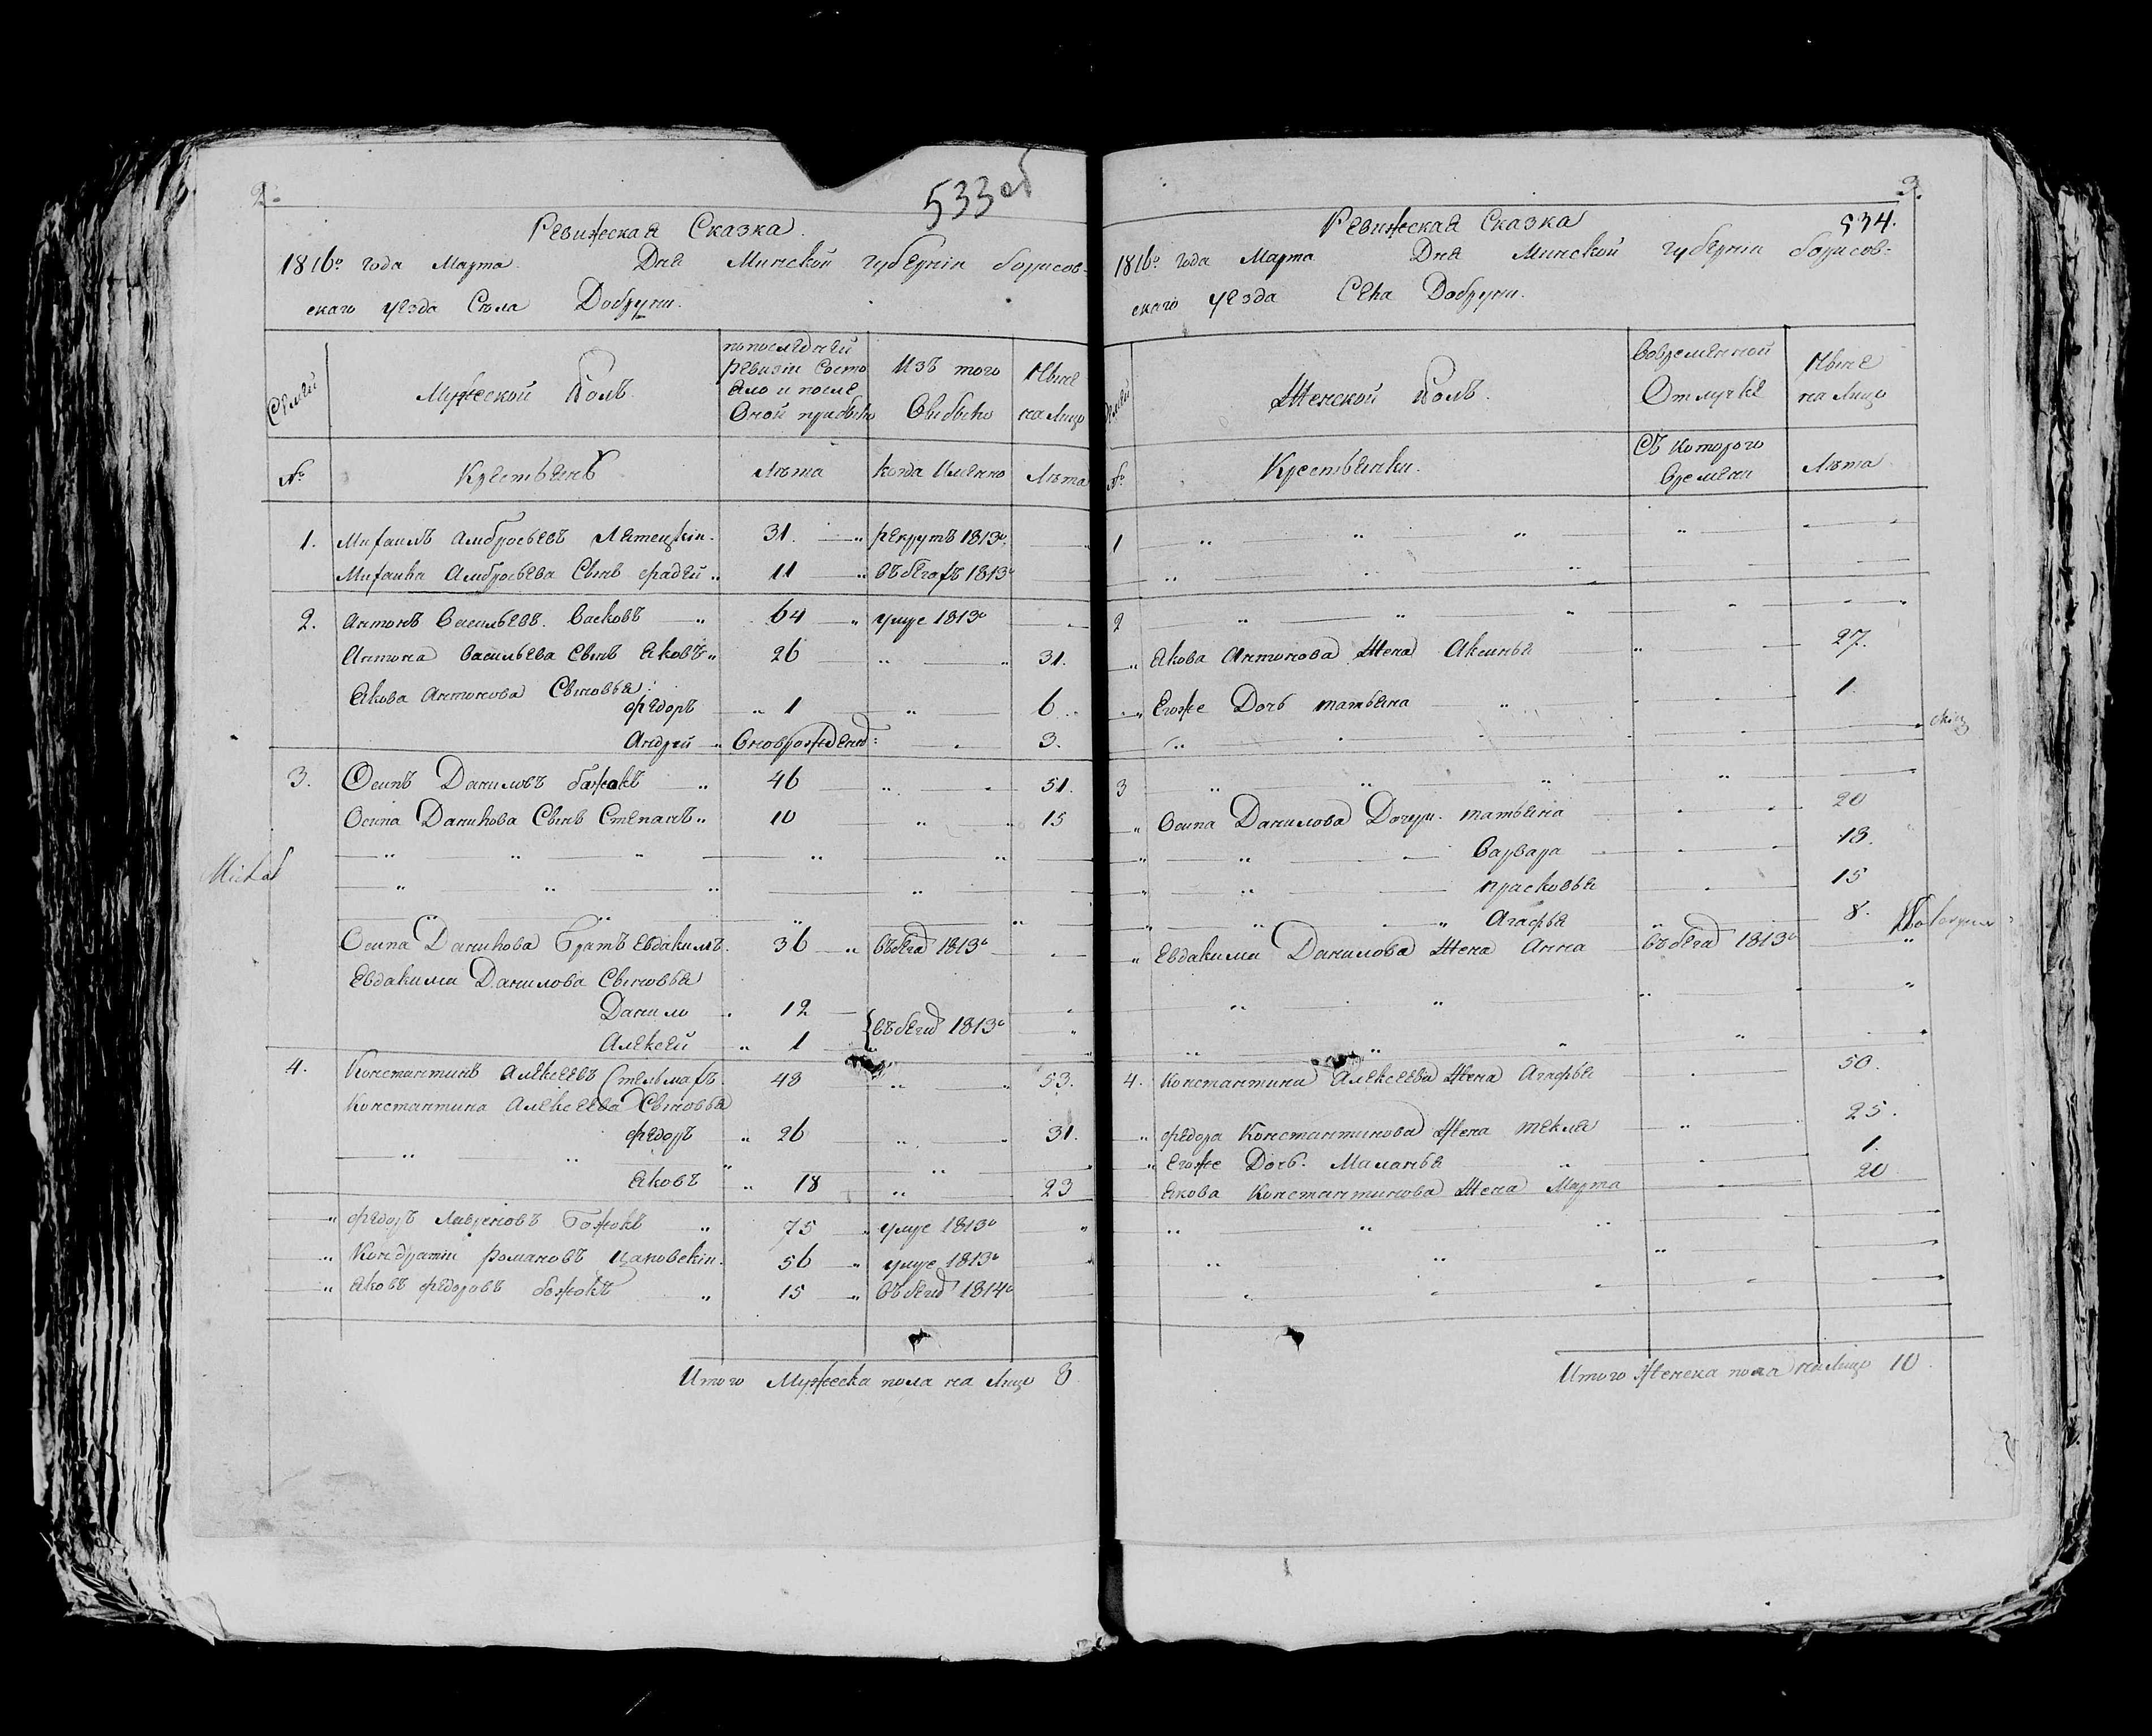 2.
533 об
Ревижская Сказка.
1816го года Марта Дня Минской губерніи борисов-
скаго уезда Села Добруни.
Семей
Мужеской Полъ.
попоследней ревизіи Состояло и после Оной прибыло
Изъ того Выбыло
Ныне на Лицо
№
Крестьянѣ
Лѣта
Когда Имянно
Лѣта
1. Михаилъ Амбросьевъ 31. рекрутъ 1813го
Михаила Амбросьева Сынъ фадей 11 въ бегахъ 1813го
2. Антонъ Васильевъ Васковъ 64 умре 1813го
Антона Васильева Сынъ Яковъ 26 31.
Якова Антонова Сыновья:
Федоръ 1 6
Андрей Вноврожденъ: 3.
3. Осипъ Даниловъ божокъ 46 51.
Осипа Данилова Сынъ Степанъ 10 15
Michał
Осипа Данилова Братъ Евдакимъ 36 въ бегах 1813го
Евдакима Данилова Сыновья
Данило 12
Алексей 1 въ бегах 1813го
4. Константинъ Алексеевъ Стельмахъ 48 53.
Константина Алексеева Сыновья
Федоръ 26 31.
Яковъ 18 23
Федоръ Лавреновъ Божокъ 75 умре 1813го
Кондратіи Романовъ 56 умре 1813го
Яковъ Федоровъ божокъ 15 въ бегах 1814го
Итого Мужеска пола на Лицо 8
3.
534.
Ревижская Сказка
1816го года Марта Дня Минской губерніи борисов-
скаго уезда Села Добруни.
Семей
Женской Полъ.
Вовременной Отлучке
Ныне на Лицо
№
Крестьянки.
Съ Которого Времени
Лѣта
1
2
Якова Антонова Жена Аксинья 27.
Егоже Дочь татьяна 1.
3
Осипа Данилова Дочери. татьяна 20
Варвара 18.
прасковья 15
Агафья 8.
Евдакима Данилова Жена Анна въ бегах 1813го
4. Константина Алексеева Жена Агафья 50.
Федора Константинова Жена текля 25.
Егоже Дочь. Маланья 1.
Якова Константинова Жена Марта 20
Итого Женска пола на Лицо 10